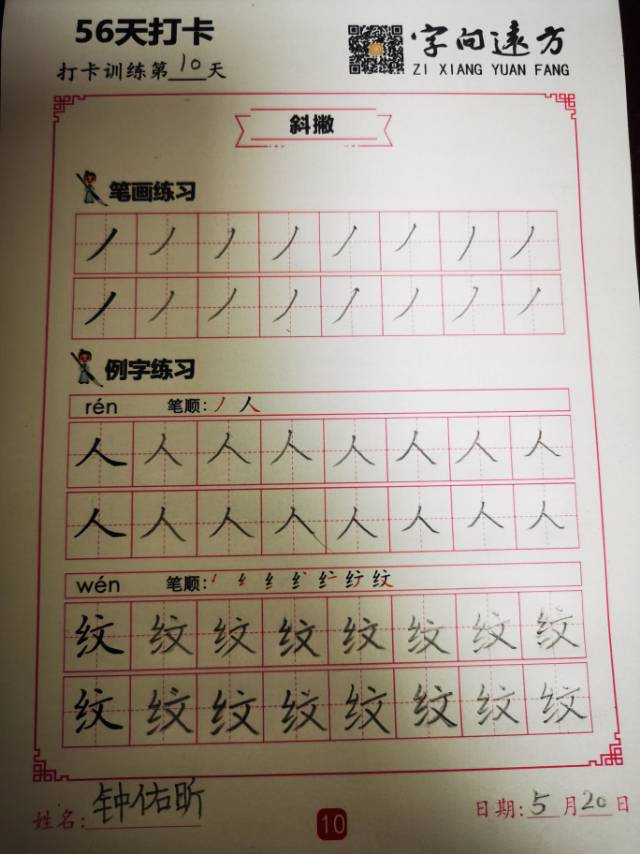 56天打卡
打卡训练第10天
字向远方
ZI XIANG YUAN FANG
斜撇
笔画练习
丿丿丿丿丿丿丿丿
丿丿丿丿丿丿丿丿
例字练习
rén 笔顺:丿人
人人人人人人人人
人人人人人人人人
wén 笔顺:
纹纹纹纹纹纹纹纹
纹纹纹纹纹纹纹纹
姓名:钟佑昕
10
日期:5月20日